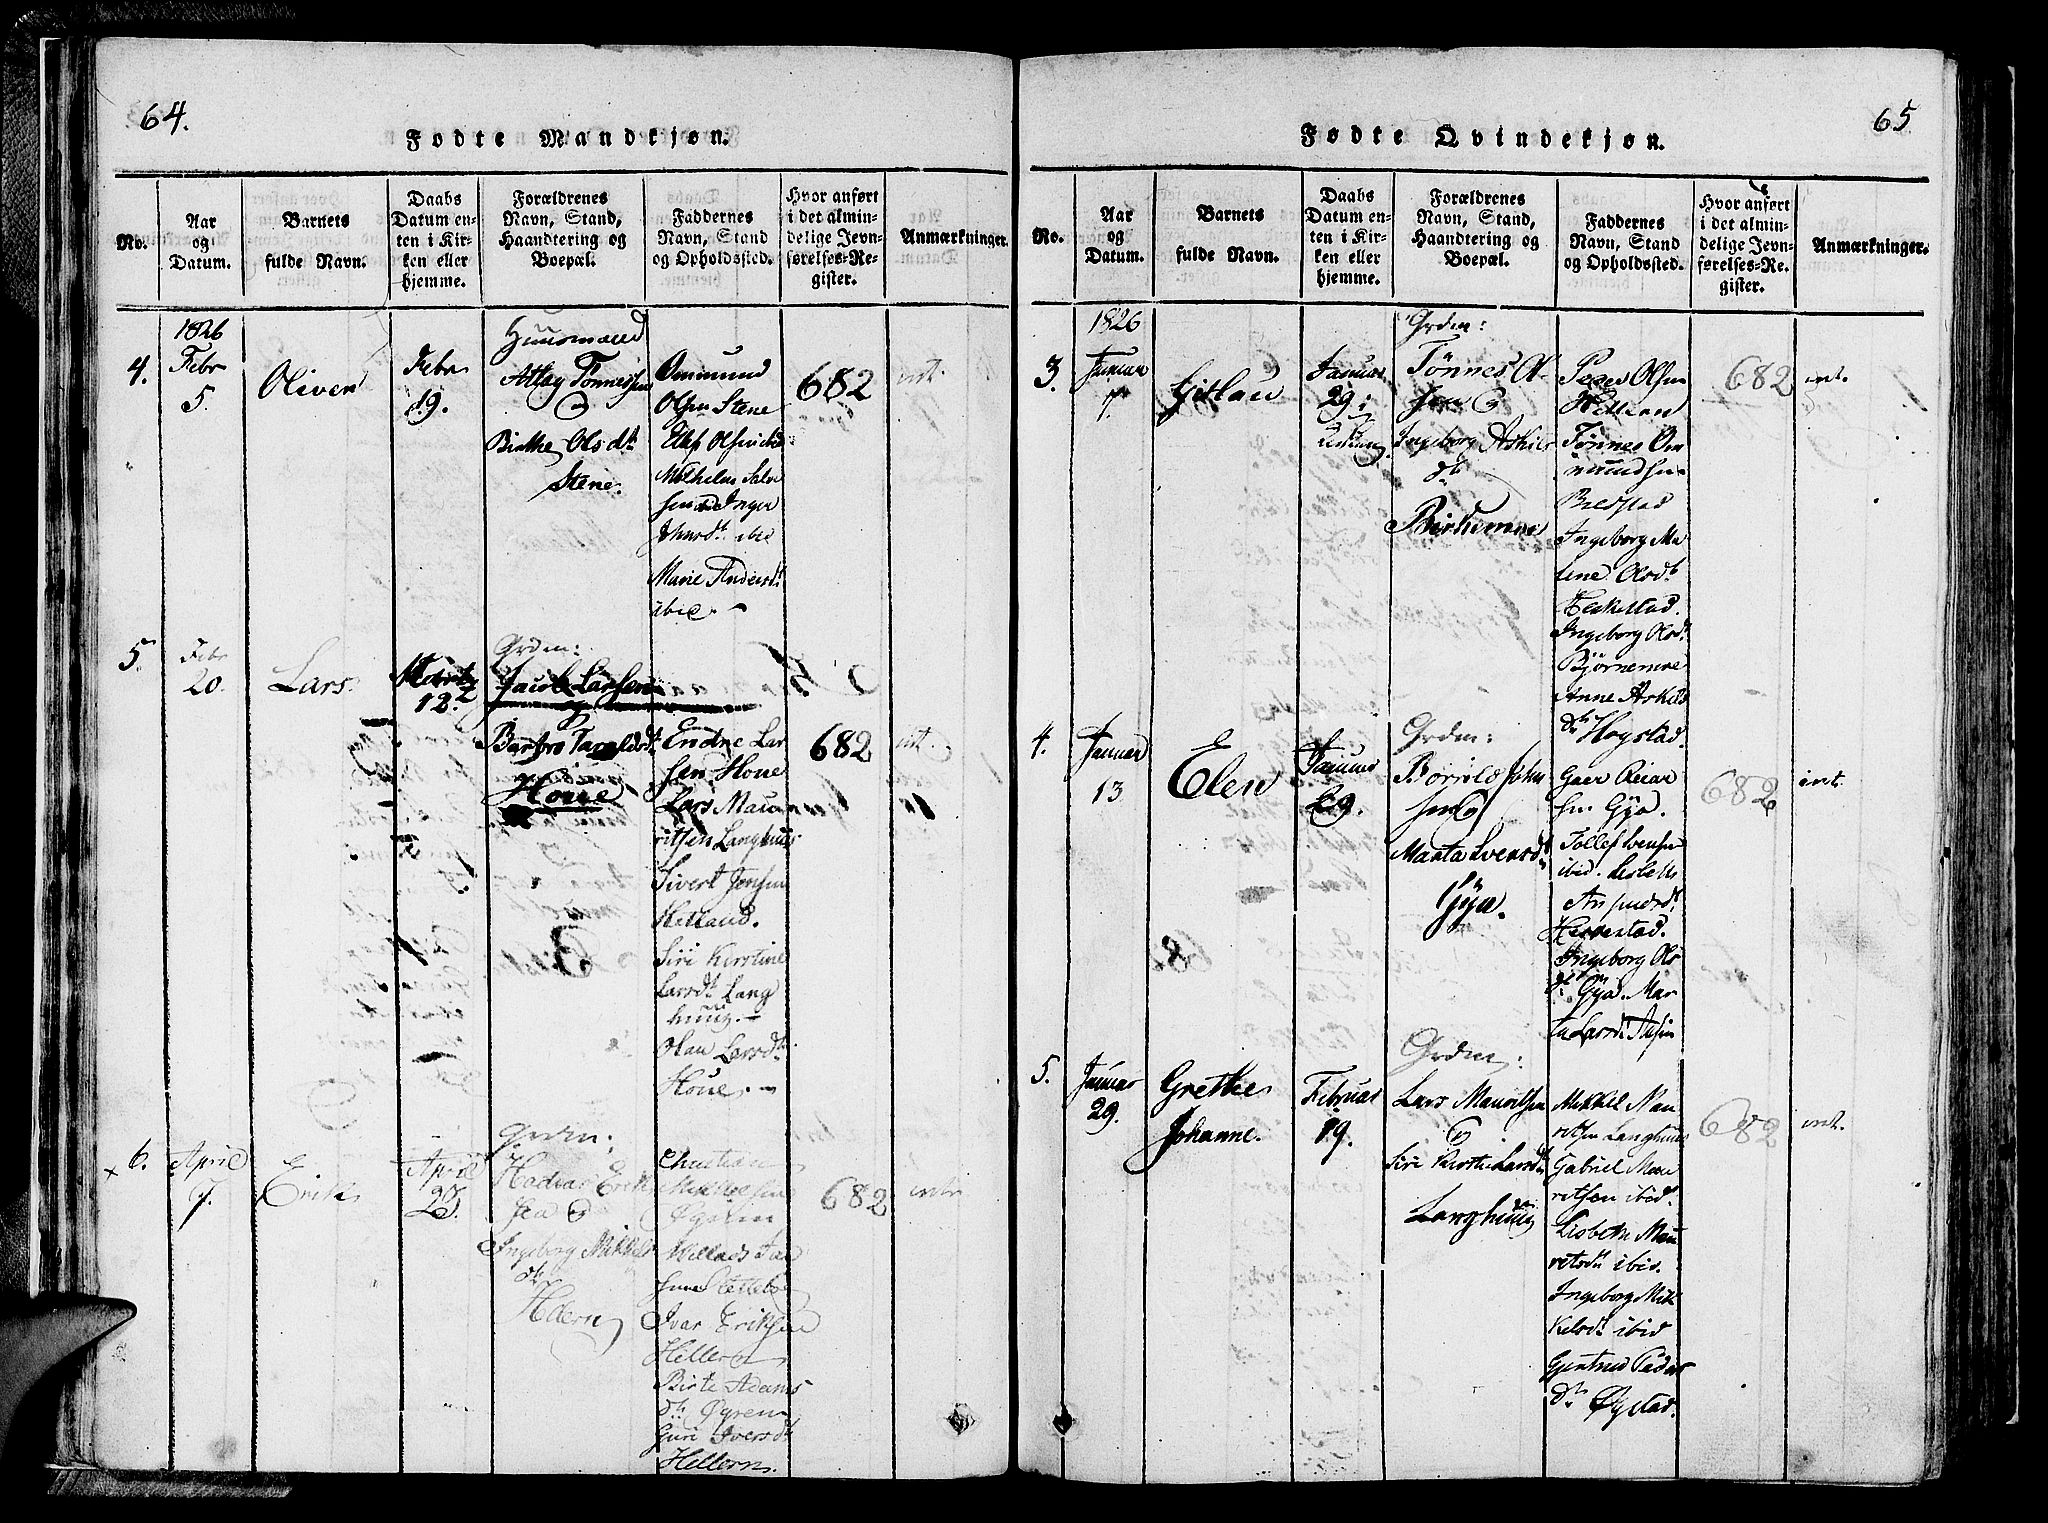 64.
Fødte Mandkjøn.
No.
Aar
og
Datum.
Barnets
fulde Navn.
Daabs
Datum en-
ten i Kir-
ken eller
hjemme.
Forældrenes
Navn, Stand,
Haandtering og
Boepæl.
Faddernes
Navn, Stand
og Opholdssted.
Hvor anført
i det almin-
delige Jevn-
førelses-Re-
gister.
Anmærkninger.
4.
1826
Febr
5.
Oliver
Febr
19.
Huusmand
Atlag Tønnessen
Birthe Olsdt
Stene.
Ommund
Olsen Stene
Ellef Olsen ibid
Inger
ibid
Marie Andersdt
ibid.
682
int.
5.
Febr
20.
Lars.
Martz
12.
Grdm:
Jacob Larsen
og
Tarald
Houe
Endre Lar
sen Houe
Lars Mau
ritsen Langhuus
Sivert Jonsen
Hetland.
Siri Kirstine
Larsdt Lang
huug.
Olau Larsdt
Houe.
682
int.
6.
April
7.
Erik
April
23.
Grdm:
Erik
sen
Ingeborg Mikkels
dt
Christian
Mikkelsen
Øgreim
Ivar Eriksen
Hellern
Birte Adams
dt Øgrem
Guri Iversdt
Hellern.
682
int.
65
Fødte Qvindekjøn.
No.
Aar
og
Datum.
Barnets
fulde Navn.
Daabs
Datum en-
ten i Kir-
ken eller
hjemme.
Forældrenes
Navn, Stand,
Haandtering og
Boepæl.
Faddernes
Navn, Stand
og Opholdssted.
Hvor anført
i det almin-
delige Jevn-
førelses-Re-
gister.
Anmærkninger.
3.
1826
Januar
7.
Gitlau
Januar
29.
Grdm:
Tønnes Ol
sen
Ingeborg Askils
dt
Birkemoe
Peder Olsen
Tønnes Om
mundsen
Bredstad
Ingeborg Ma
lene Olsdt
Heskestad.
Ingeborg Olsdt
Bjørnemoe
Anne Askils
dt Hogstad.
682
int.
4.
Januar
13
Elen
Januar
29.
Grdm:
John
sen
Marta Svensdt
Gya.
Reiar
sen Gya.
Tollef Svensen
ibid. Lisbeth
Asmundsdt
Heskestad.
Ingeborg Ols
dt Gya. Mar
ta Larsdt
682
int.
5.
Januar
29.
Grethe
Johanne.
Februar
19.
Grdm:
Lars Mauritsen
Siri Kirstine Larsdt
Langhuug
Mikkel Mau
ritsen Langhuus
Gabriel Mau
ritsen ibid.
Lisbeth Mau
retsdt ibid.
Ingeborg Mik
kelsdt ibid
Gjertrud Peders
dt Øgstad.
682
int.